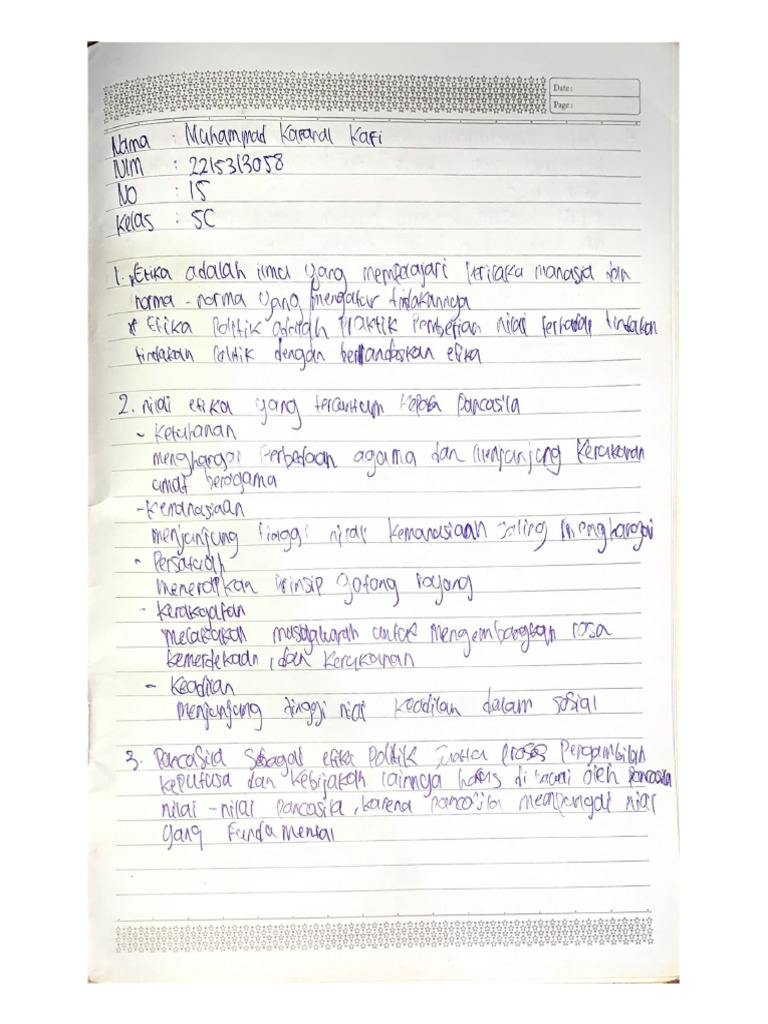 Date :
Page :
Nama : Muhammad Kafanal Kafi
NIM : 2215313058
No : 15
Kelas : 5C
1. * Etika adalah ilmu yang mempelajari perilaku manusia dan
norma - norma yang mengatur tindakannya
* Etika Politik adalah Praktik Pemberian nilai terhadap tindakan
tindakan Politik dengan berlandaskan etika
2. nilai etika yang tercantum kepada pancasila
- Ketuhanan
menghargai Perbedaan agama dan menjunjung Kerukunan
umat beragama
- Kemanusiaan
menjunjung tinggi nilai kemanusiaan saling menghargai
- Persatuan
menerapkan Prinsip gotong royong
- Kerakyatan
melakukan musyawarah untuk mengembangkan rasa
kemerdekaan, dan Kerukunan
- Keadilan
menjunjung tinggi nilai keadilan dalam sosial
3. Pancasila sebagai etika Politik proses Pengambilan
keputusa dan kebijakan lainnya harus di oleh pancasila
nilai - nilai pancasila, karena pancasila mempunyai nilai
yang Fundamental